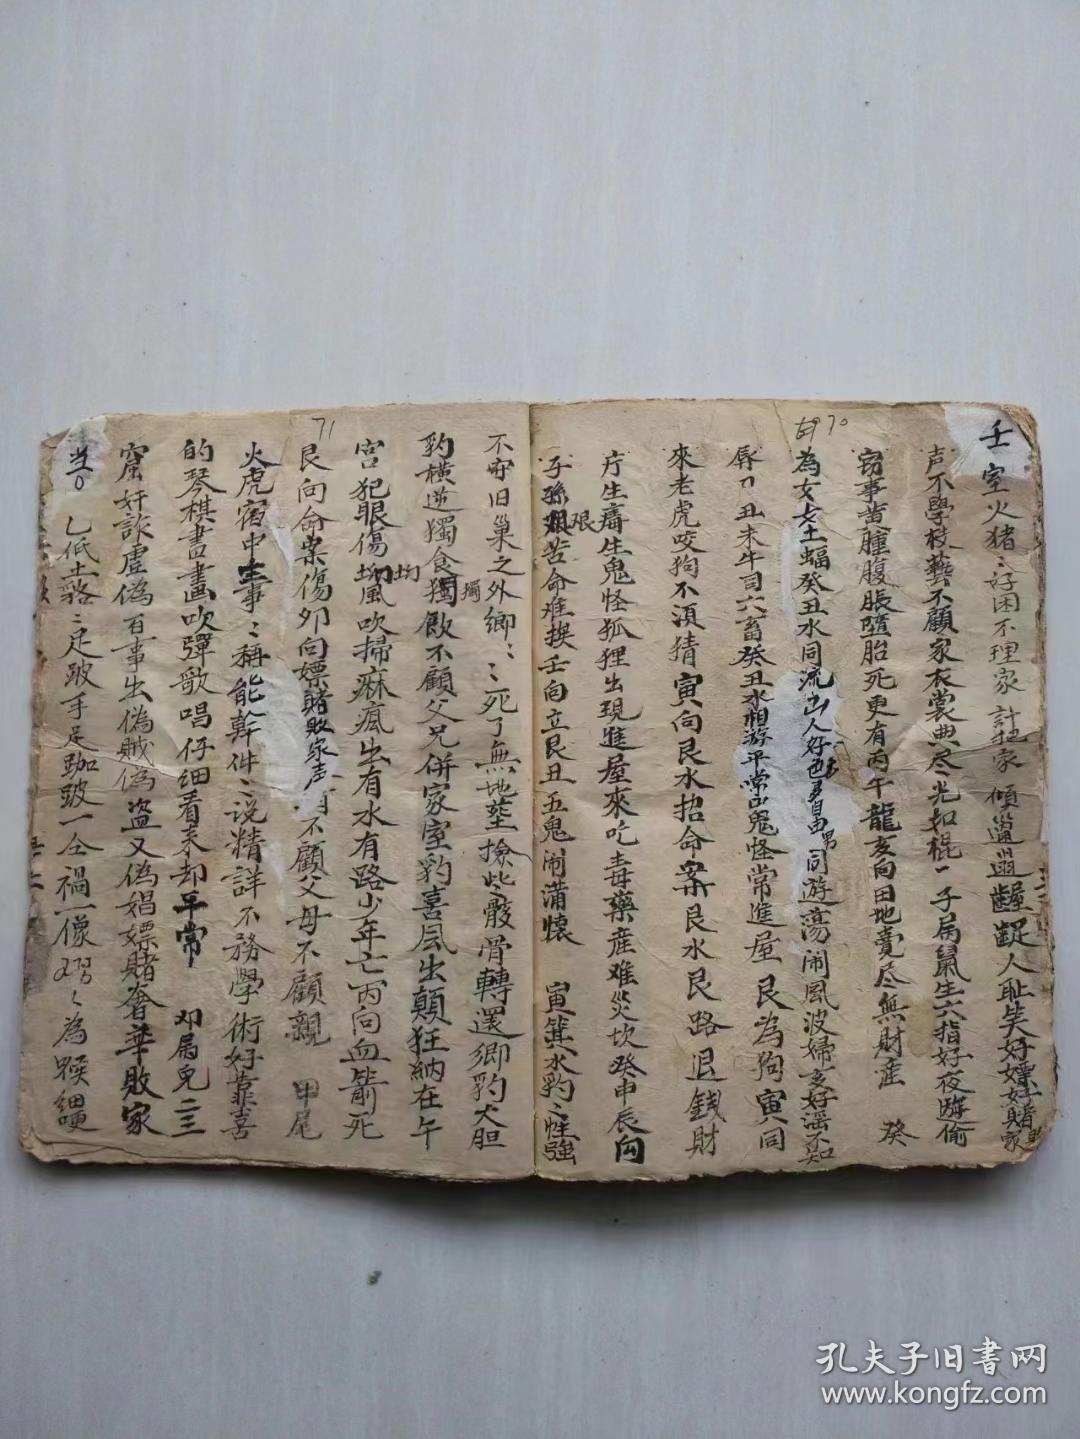 70
壬室火猪〻好困不理家 計 家傾邋遢齷齪人耻笑好嫖好賭家
声不學校藝不顧家衣裳典尽光如棍一子属鼠生六指好夜遊偷
窃事黄腫腹脹墮胎死更有丙午龍亥向田地賣尽無財産 癸
為女 土蝠癸丑水同流出人好色 自由男同游蕩闹風波婦女好淫不知
辱刀丑未牛司六畜癸丑水相游平常出鬼怪常進屋 艮為狗寅同
來老虎咬狗不須猜寅向艮水招命案艮水艮路退錢財
疔生癆生鬼怪狐狸出現進屋來吃毒藥産难災坎癸申辰向
子孫艰苦命难挨壬向立艮丑五鬼闹满懷 寅箕水豹〻性強
71
不守旧巢之外鄉〻〻死了無地塟撿些骸骨轉還鄉豹大胆
豹横逆獨食獨飲不顧父兄併家室豹喜風出顛狂納在午
宫犯眼傷坳風吹掃痳瘋出有水有路少年亡丙向血箭死
艮向命案傷夘向嫖賭敗家声 不顧父母不顧親 甲尾
火虎宿中主事〻称能幹件〻说精詳不務學術好靠喜
的琴棋書畫吹彈歌唱仔细看来却平常 邓属兔二三
窟奸詼虚偽百事出偽賊偽盗又偽娼嫖賭奢華敗家
当。 乙低土貉〻足跛手足跏跛一仝禍一像 為 細
孔夫子旧書网
www.kongfz.com